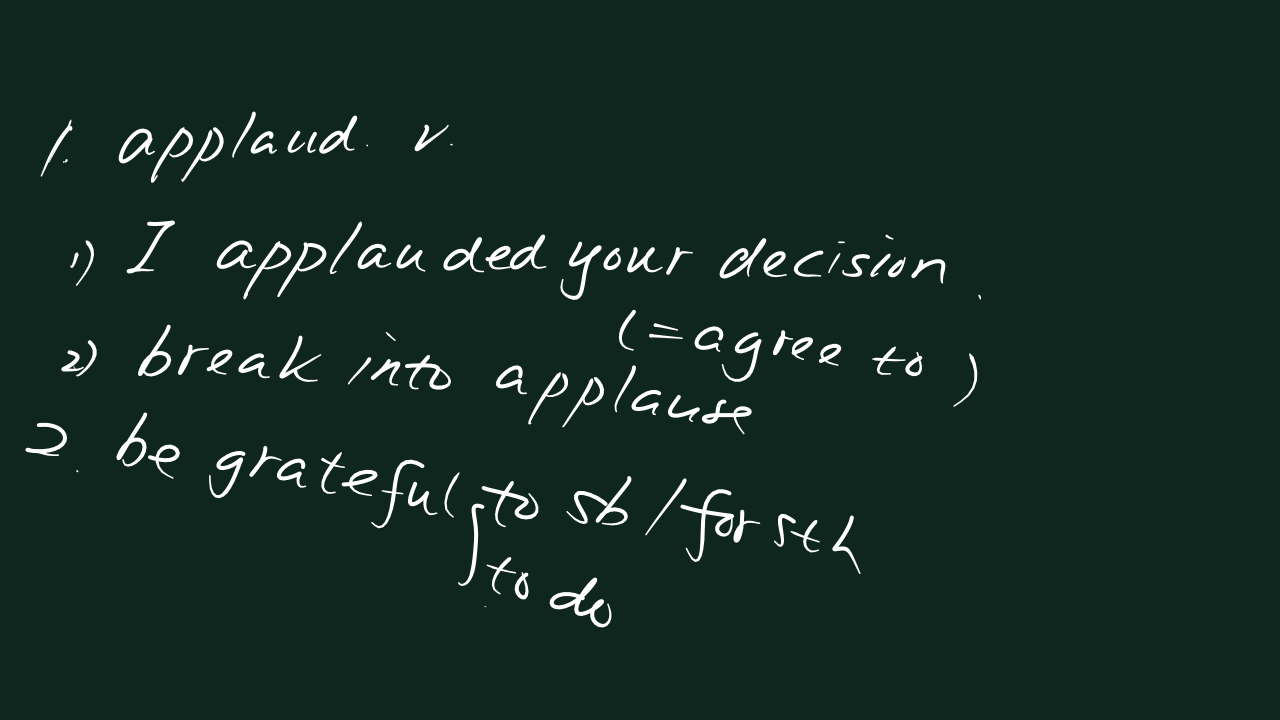 1. applaud. v.
1) I applauded your decision.
(=agree to)
2) break into applause
2. be grateful to sb/for sth
to do